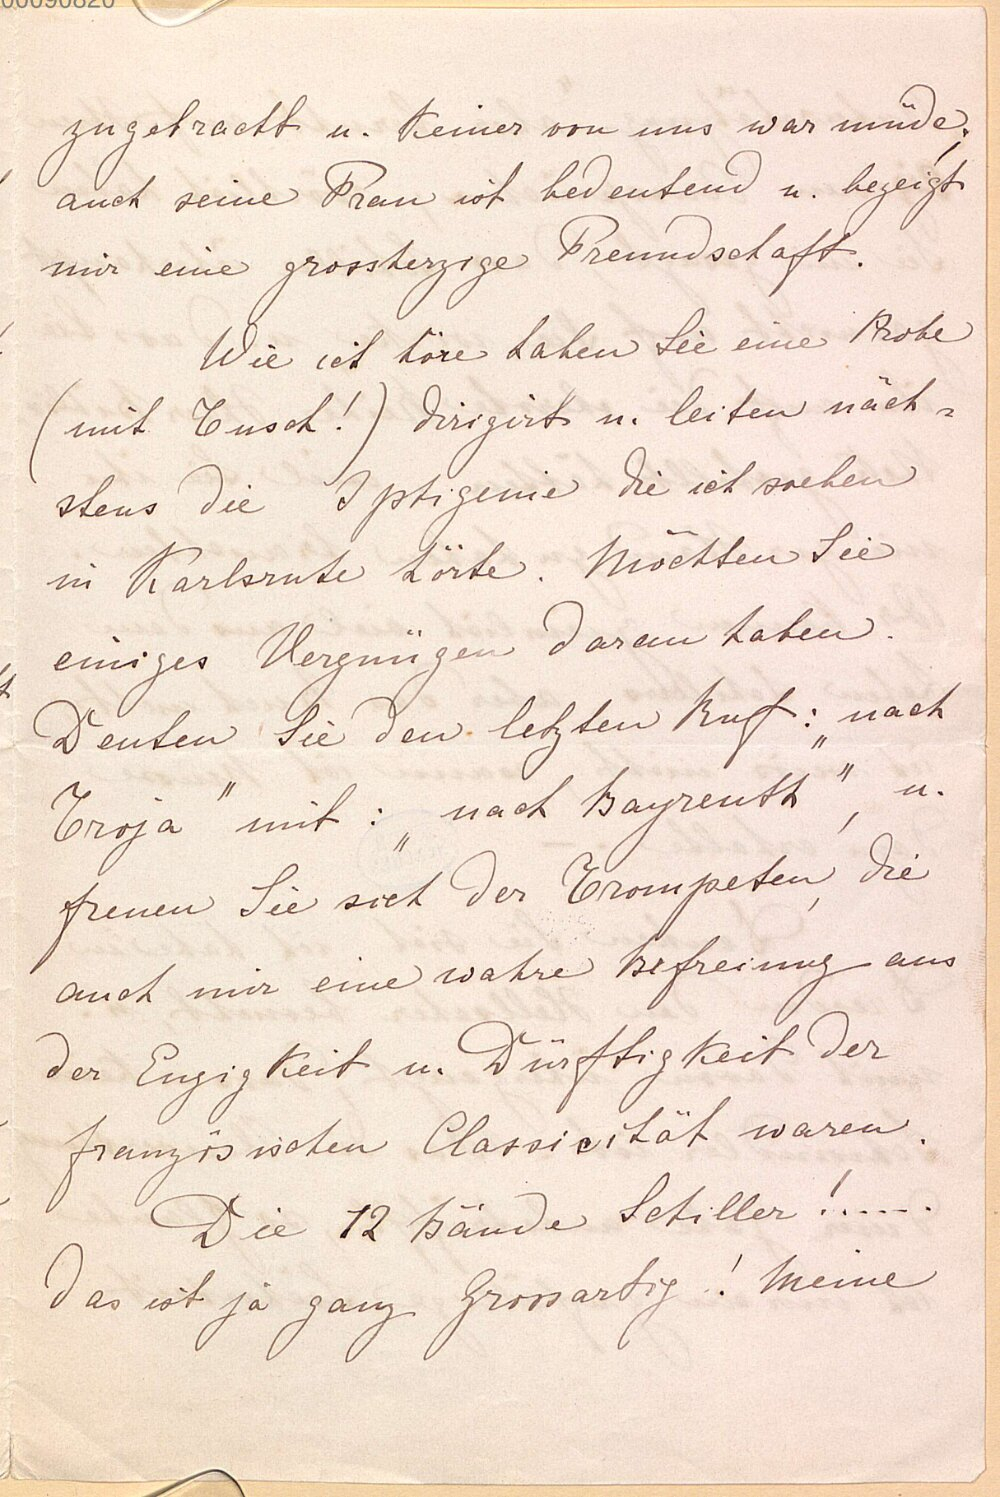 00090820
zugebracht u. Keiner von uns war müde;
auch seine Frau ist bedeutend u. bezeigt
mir eine grossherzige Freundschaft.
Wie ich höre haben Sie eine Probe
(mit Tusch!) dirigirt u. leiten näch-
stens die Iphigenie die ich soeben
in Karlsruhe hörte. Möchten Sie
einiges Vergnügen daran haben.
Deuten Sie den letzten Ruf: „nach
Troja" mit: „nach Bayreuth", u.
freuen Sie sich der Trompeten, die
auch mir eine wahre Befreiung aus
der Engigkeit u. Dürftigkeit der
französischen Classicität waren.
Die 12 Bände Schiller!.....
das ist ja ganz Grossartig! Meine